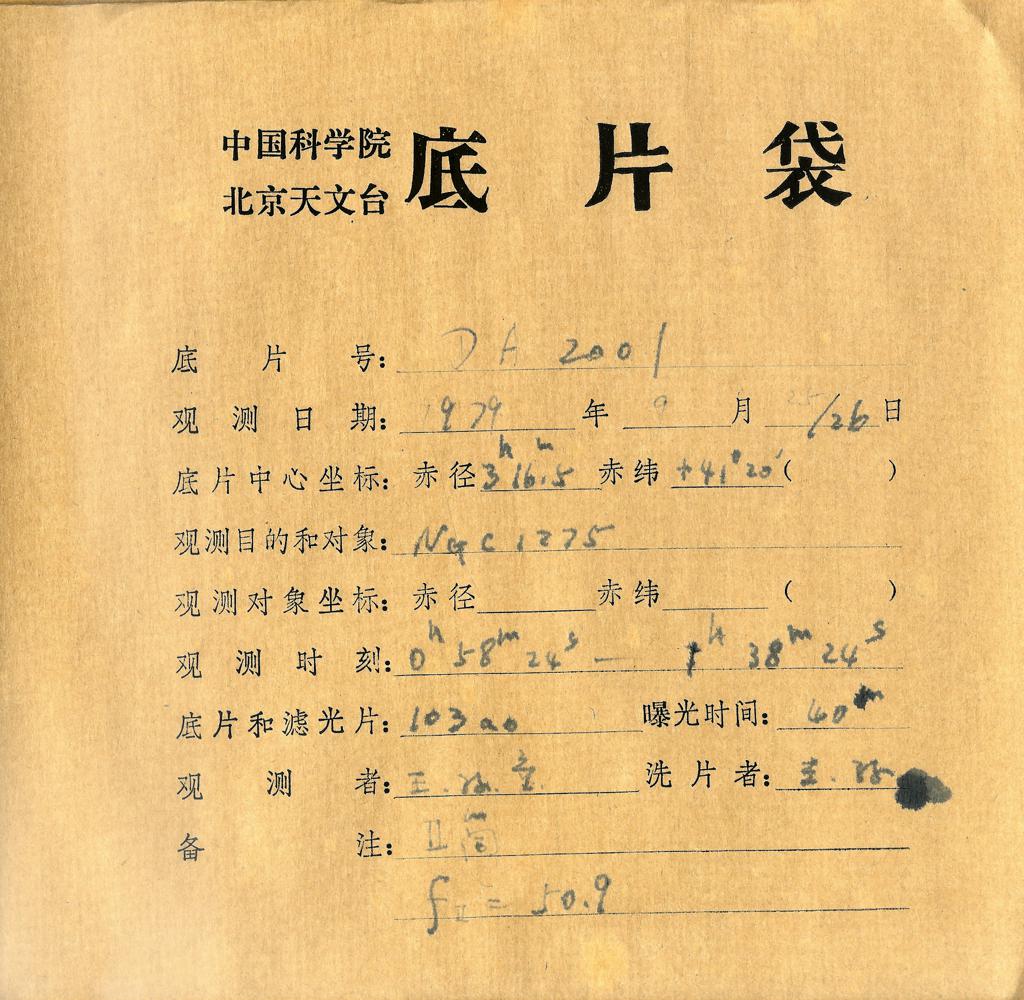 中国科学院
北京天文台
底片袋
底片号: DA 2001
观测日期: 1979年9月25/26日
底片中心坐标: 赤径 3ʰ16ᵐ.5 赤纬 +41°20′( )
观测目的和对象: NGC 1275
观测对象坐标: 赤径 赤纬 ( )
观测时刻: 0ʰ58ᵐ24ˢ — 1ʰ38ᵐ24ˢ
底片和滤光片: 103aO 曝光时间: 40ᵐ
观测者: 王. 洗片者: 王.
备注: II筒
f_II = 50.9